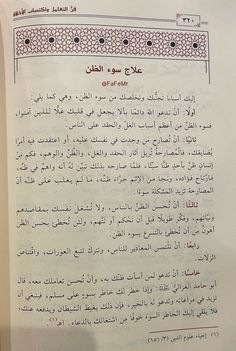 فنّ التعامل واكتساب الأخلاق
٣٢٠
علاج سوء الظن
@FaFeMr
إليك أسبابًا تجنُّبك وتخلصك من سوء الظن، وهي كما يلي:
أولًا: أن تدعو الله دائمًا بألا يجعل في قلبك غلًّا للذين آمنوا،
فسوء الظن من أعظم أسباب الغلّ والحقد على الناس.
ثانيًا: أن تصارح من وجدت في نفسك عليه، أو اعتقدت فيه أمرًا
يُضايقك، فالمصارحة تُزيل آثار الحقد والغلّ، والظنّ والوهم، فكم مِن
إنسان ظنّ بأحدٍ ظنًّا سيئًا، فلمّا صارحه بذلك تبيَّن له أنه واهمٌ في ظنّه،
فارتاح فؤاده، ونجا من الإثم جرّاء ظنّه، ما لم يغلب على ظنّه أنّ
المصارحة تزيد المشكلة سوءًا.
ثالثًا: أن تُحسن الظنّ بالناس، ولا تُشغل نفسك بمقاصدهم
ونيّاتهم، وفكّر طويلًا قبل أن تحكم أو تتّهم، ولَئِن تُخطئ بحسن الظن
أهونُ مِن أن تُخطئ بالتسرع بسوء الظن.
رابعًا: أن تلتَمس المعاذير للناس، وتترك تتبّع العورات، واقتناص
الزلات.
خامسًا: أن تدعو لمن أسأت ظنّك به، وأن تُحسن تعاملك معه، قال
أبو حامد الغزالي رحمه الله: وإذا خطر لك خاطر بسوءٍ على مسلم، فينبغي أن
تزيد في مراعاته وتدعو له بالخير، فإن ذلك يغيظ الشيطان ويدفعه عنك،
فلا يلقي إليك الخاطر السوء خوفًا من اشتغالك بالدعاء. اهـ(١)
(١) إحياء علوم الدين (٣/ ١٥١)